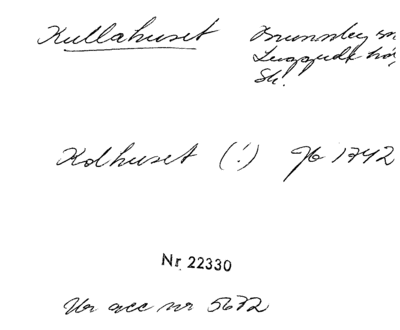 Kullahuset Brunnby sn
Luggude hd,
Sk.
Kolhuset (!) Jb 1742
Nr 22330
Ur acc nr 5672